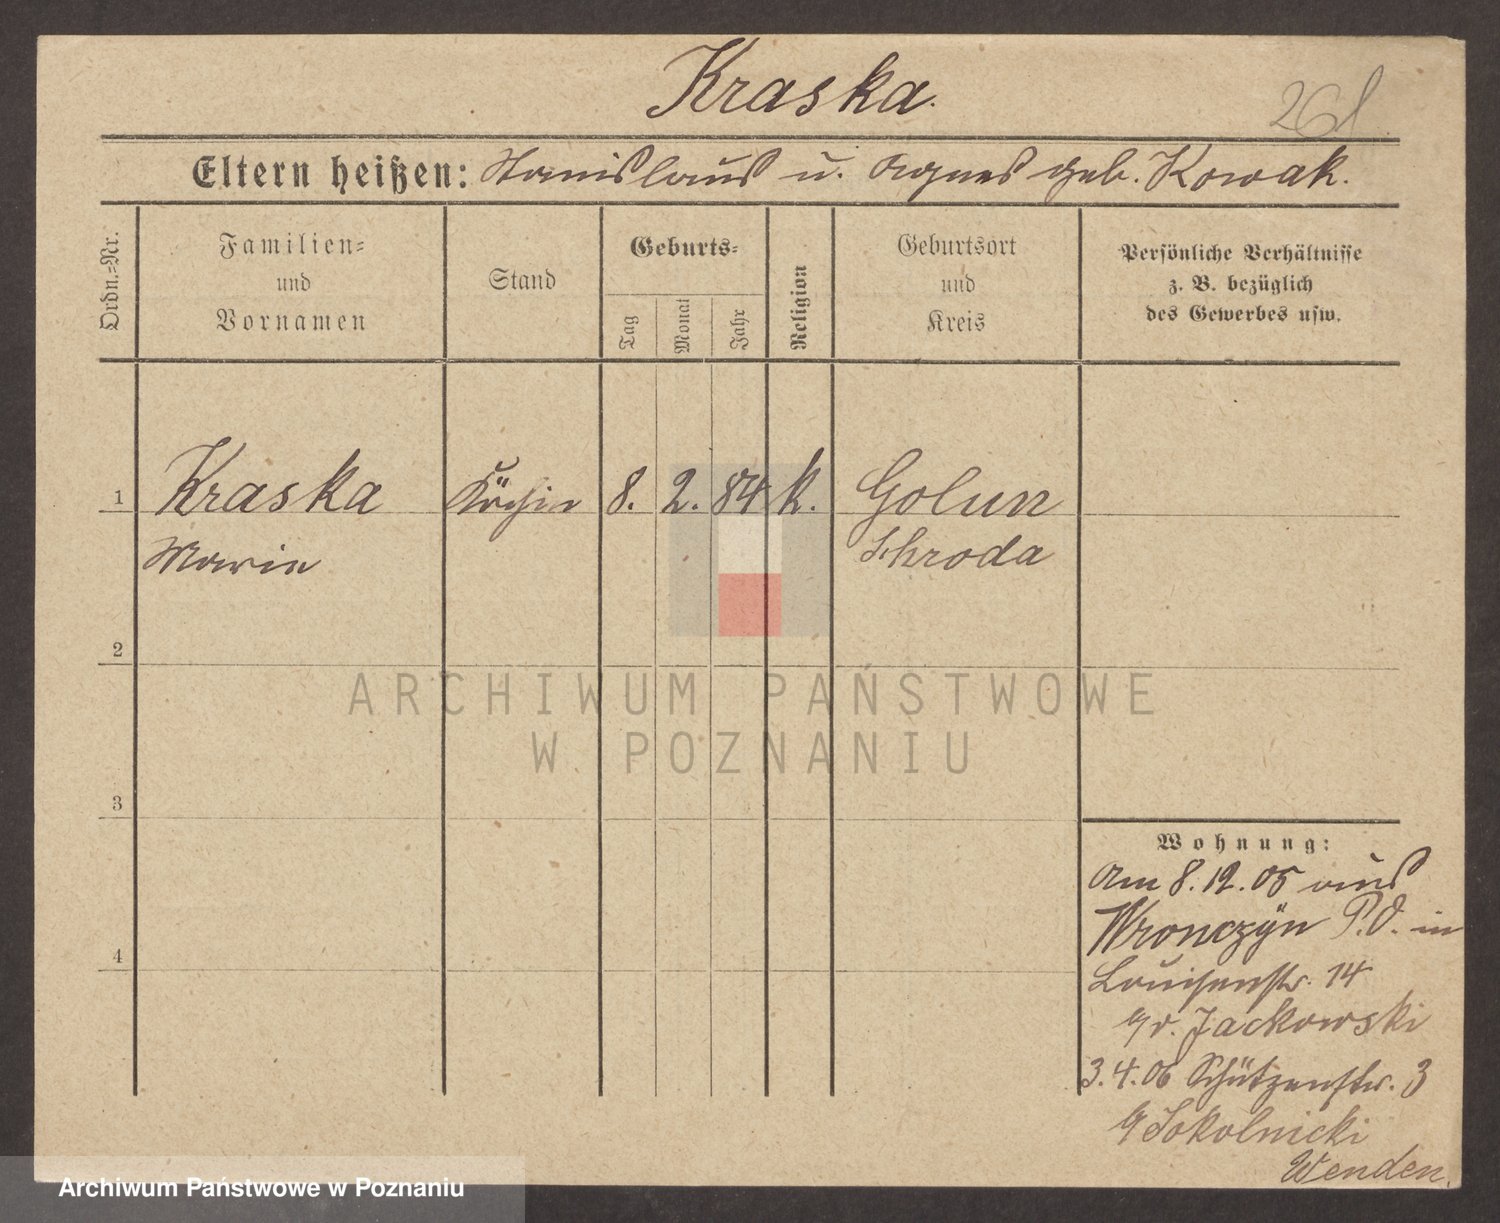 Kraska.
261
Eltern heißen: Stanislaus u. Agnes geb. Kowak.
Ordn.=Nr.
Familien= und Vornamen
Stand
Geburts=
Tag
Monat
Jahr
Religion
Geburtsort und Kreis
Persönliche Verhältnisse
z. B. bezüglich
des Gewerbes usw.
1 Kraska Köchin 8. 2. 84 k. Golun
Marie Schroda
2
ARCHIWUM PAŃSTWOWE
W POZNANIU
3
Wohnung:
Am 8.12.05 aus
Wronczÿn P.O. in
Louisenstr. 14
v. Jackowski
4
3.4.06 Schützenstr. 3
Sokolnicki
Wenden.
Archiwum Państwowe w Poznaniu